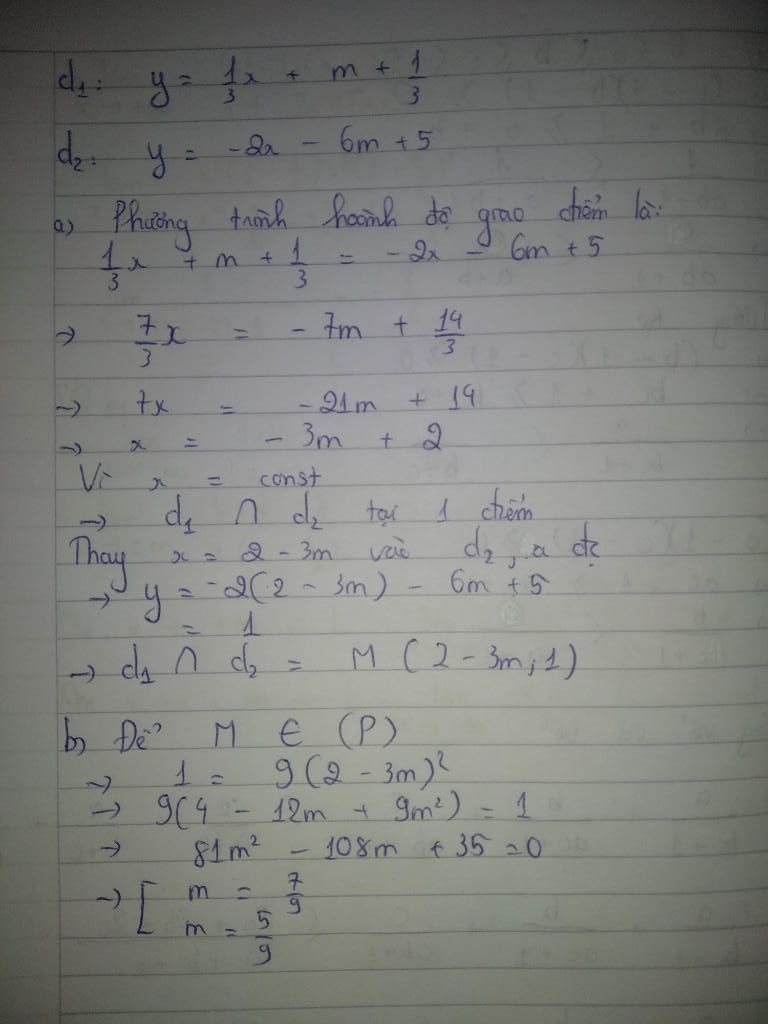 d₁: y = 1/3 x + m + 1/3
d₂: y = -2x - 6m + 5
a) Phương trình hoành độ giao điểm là:
1/3 x + m + 1/3 = -2x - 6m + 5
→ 7/3 x = - 7m + 14/3
→ 7x = -21m + 14
→ x = - 3m + 2
Vì x = const
→ d₁ ∩ d₂ tại 1 điểm
Thay x = 2 - 3m vào d₂, a đc
→ y = -2(2 - 3m) - 6m + 5
= 1
→ d₁ ∩ d₂ = M (2 - 3m; 1)
b) Để M ∈ (P)
→ 1 = 9(2 - 3m)²
→ 9(4 - 12m + 9m²) = 1
→ 81m² - 108m + 35 = 0
→ [ m = 7/9
m = 5/9